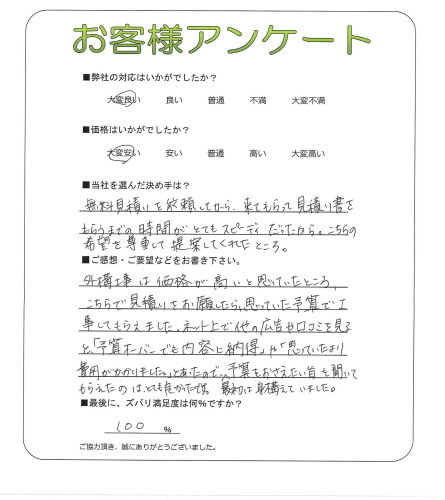 お客様アンケート
■弊社の対応はいかがでしたか？
大変良い 良い 普通 不満 大変不満
■価格はいかがでしたか？
大変安い 安い 普通 高い 大変高い
■当社を選んだ決め手は？
無料見積りを依頼してから、来てもらって見積り書を
もらうまでの時間がとてもスピーディだったから。こちらの
希望を尊重して提案してくれたところ。
■ご感想・ご要望などをお書き下さい。
外構工事は価格が高いと思っていたところ、
こちらで見積りをお願したら、思っていた予算で工
事してもらえました。ネット上で他の広告や口コミを見る
と、「予算オーバーでも内容に納得」や「思っていたより
費用がかかりました。」とあったので、予算をおさえたい旨も聞いて
もらえたのはとても良かったです。最初は身構えていました。
■最後に、ズバリ満足度は何％ですか？
100 ％
ご協力頂き、誠にありがとうございました。